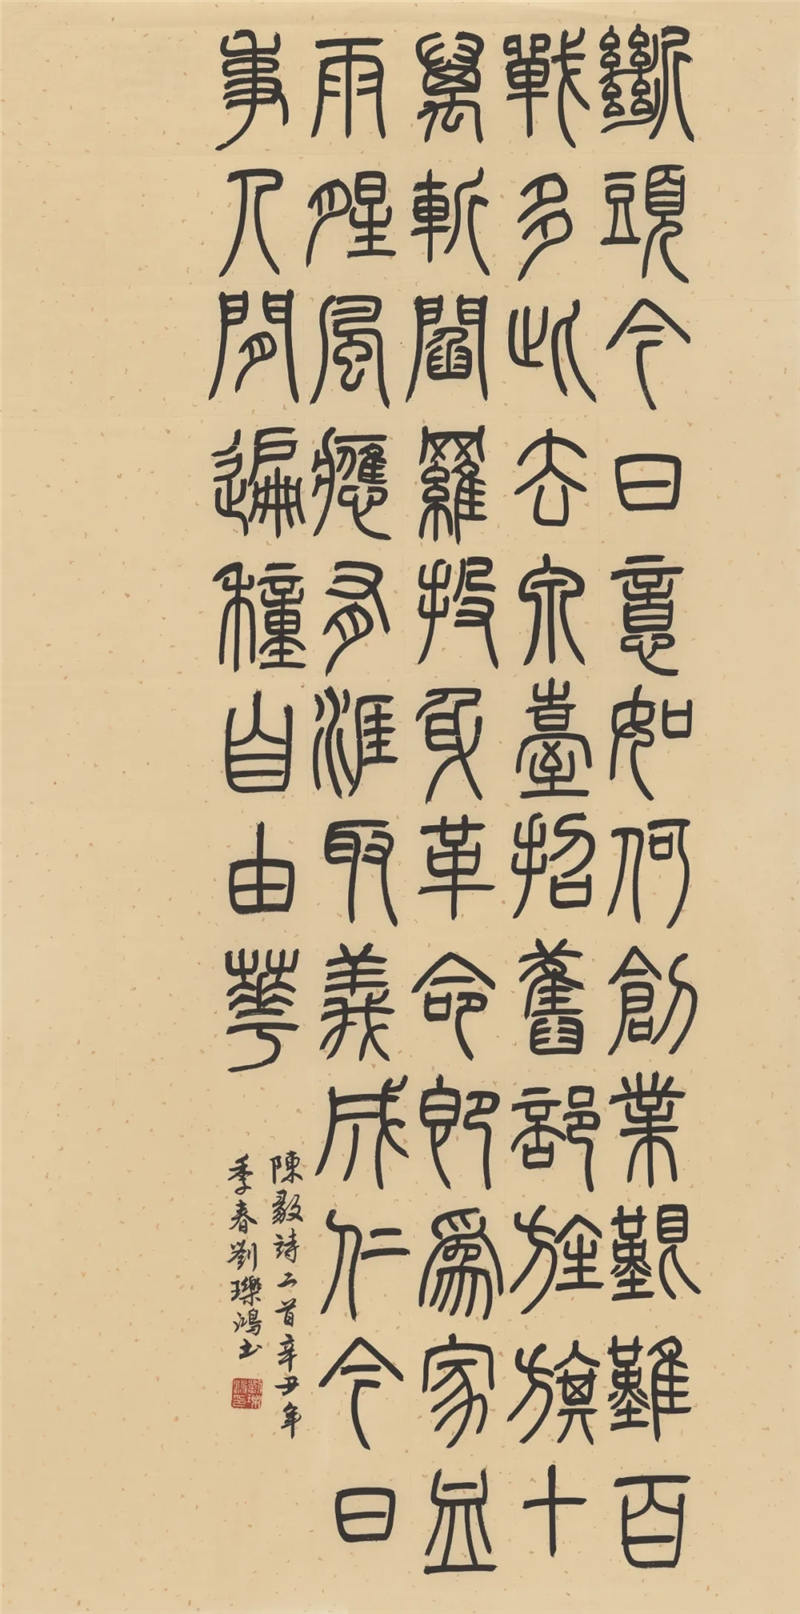 斷頭今日意如何創業艱難百
戰多此去泉臺招舊部旌旗十
萬斬閻羅投身革命即爲家血
雨腥風應有涯取義成仁今日
事人間遍種自由華
陳毅詩二首辛丑年
季春劉瓅鴻書